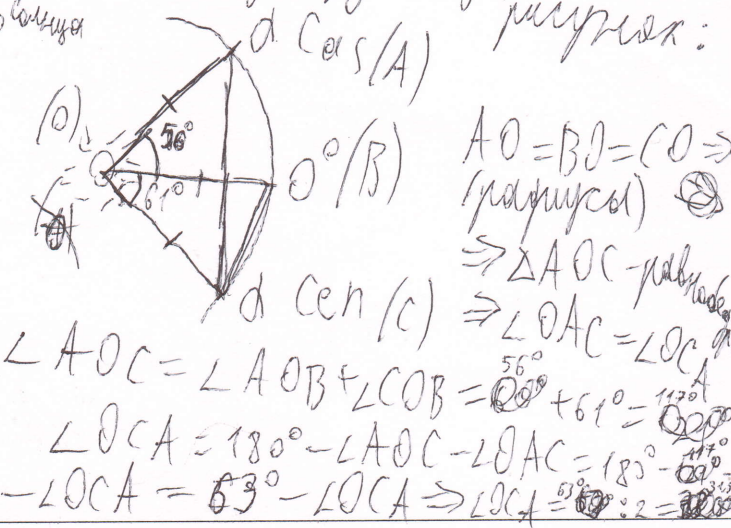 Солнца
рисунок:
α Cas (A)
(O)
56°
61°
0° (B)
α Cen (C)
AO = BO = CO ⇒
(радиусы)
⇒ △AOC - равнобед
⇒ ∠OAC = ∠OCA
∠AOC = ∠AOB + ∠COB = 56° + 61° = 117°
∠OCA = 180° - ∠AOC - ∠OAC = 180° - 117° -
- ∠OCA = 63° - ∠OCA ⇒ ∠OCA = 63° : 2 =